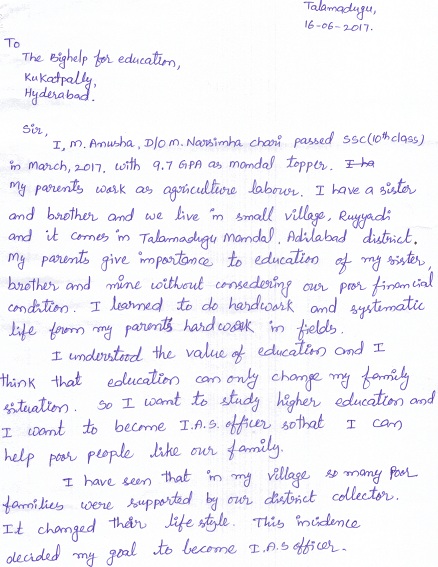 Talamadugu,
16-06-2017.
To
The Bighelp for education,
Kukatpally,
Hyderabad.
Sir,
I, M. Anusha, D/O M. Narsimha chari passed SSC (10th class)
in March, 2017. with 9.7 GPA as mandal topper. I ha
My parents work as agriculture labour. I have a sister
and brother and we live in small village, Ruyyadi
and it comes in Talamadugu Mandal, Adilabad district.
My parents give importance to education of my sister,
brother and mine without consedering our poor financial
condition. I learned to do hardwork and systematic
life form my parents hardwork in fields.
I understood the value of education and I
think that education can only change my family
situation. So I want to study higher education and
I want to become I.A.S. officer sothat I can
help poor people like our family.
I have seen that in my village so many Poor
families were supported by our district collector.
It changed their life style. This incidence
decided my goal to become I.A.S officer.